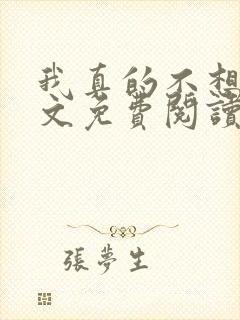 我真的不想
文免費閱讀
張夢生